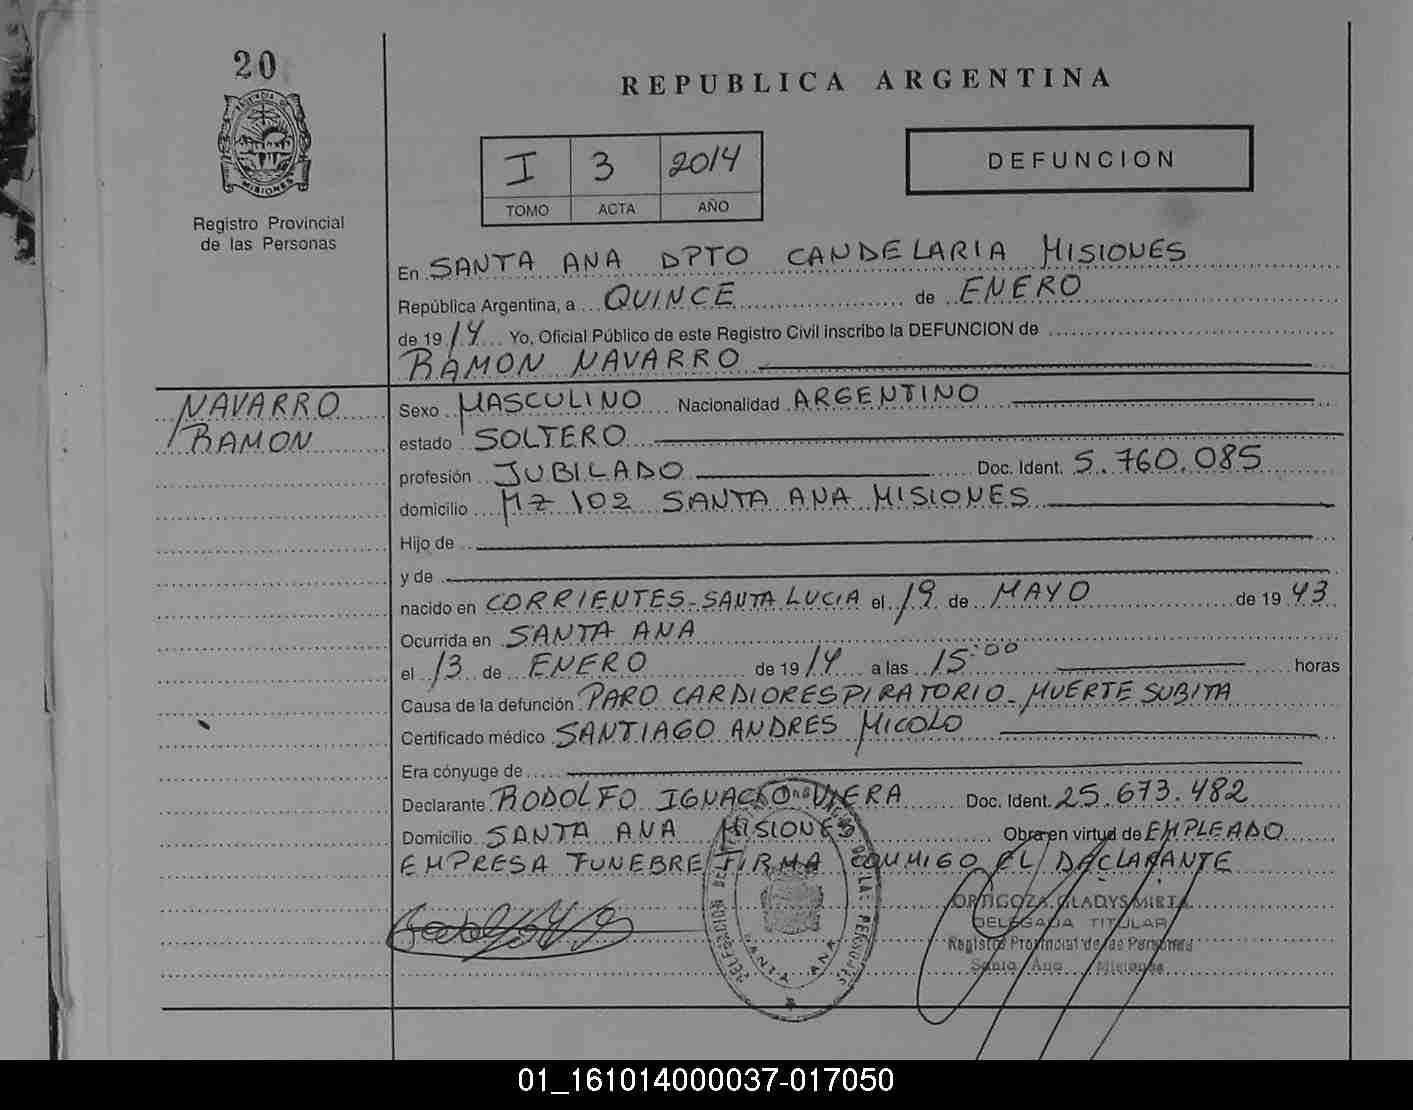 20
REPUBLICA ARGENTINA
PROVINCIA DE
MISIONES
Registro Provincial
de las Personas
I 3 2014
TOMO ACTA AÑO
DEFUNCION
En SANTA ANA DPTO CANDELARIA MISIONES
República Argentina, a QUINCE de ENERO
de 19 14 Yo, Oficial Público de este Registro Civil inscribo la DEFUNCION de
RAMON NAVARRO
NAVARRO
RAMON
Sexo MASCULINO Nacionalidad ARGENTINO
estado SOLTERO
profesión JUBILADO Doc. Ident. 5.760.085
domicilio MZ 102 SANTA ANA MISIONES
Hijo de
y de
nacido en CORRIENTES-SANTA LUCIA el 19 de MAYO de 19 43
Ocurrida en SANTA ANA
el 13 de ENERO de 19 14 a las 15:00 horas
Causa de la defunción PARO CARDIORESPIRATORIO-MUERTE SUBITA
Certificado médico SANTIAGO ANDRES MICOLO
Era cónyuge de
Declarante RODOLFO IGNACIO VIERA Doc. Ident. 25.673.482
Domicilio SANTA ANA MISIONES Obra en virtud de EMPLEADO
EMPRESA FUNEBRE FIRMA CONMIGO EL DACLARANTE
SANTA ANA
ORTIGOZA GLADYS MIRTA
DELEGADA TITULAR
Registro Provincial de las Personas
Santa Ana Misiones
01_161014000037-017050